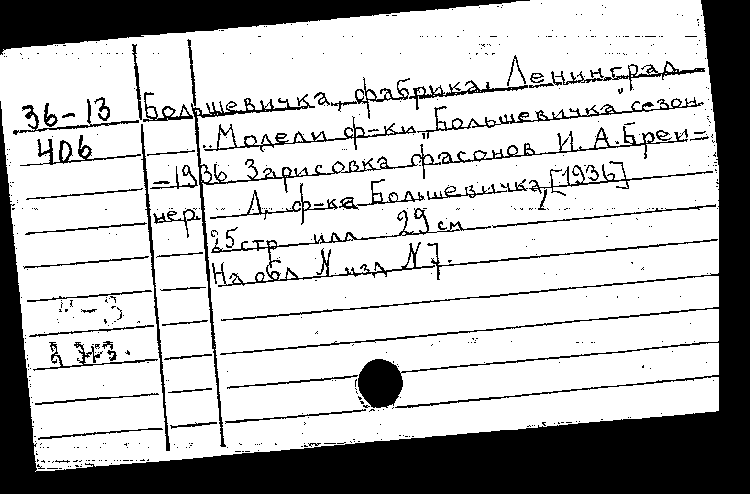 36-13
406
Большевичка, фабрика. Ленинград
"Модели ф-ки "Большевичка" сезон
-1936 Зарисовка фасонов И. А. Брей=
нер. Л, ф-ка Большевичка, [1936]
25 стр илл 29 см
На обл N изд N 7.